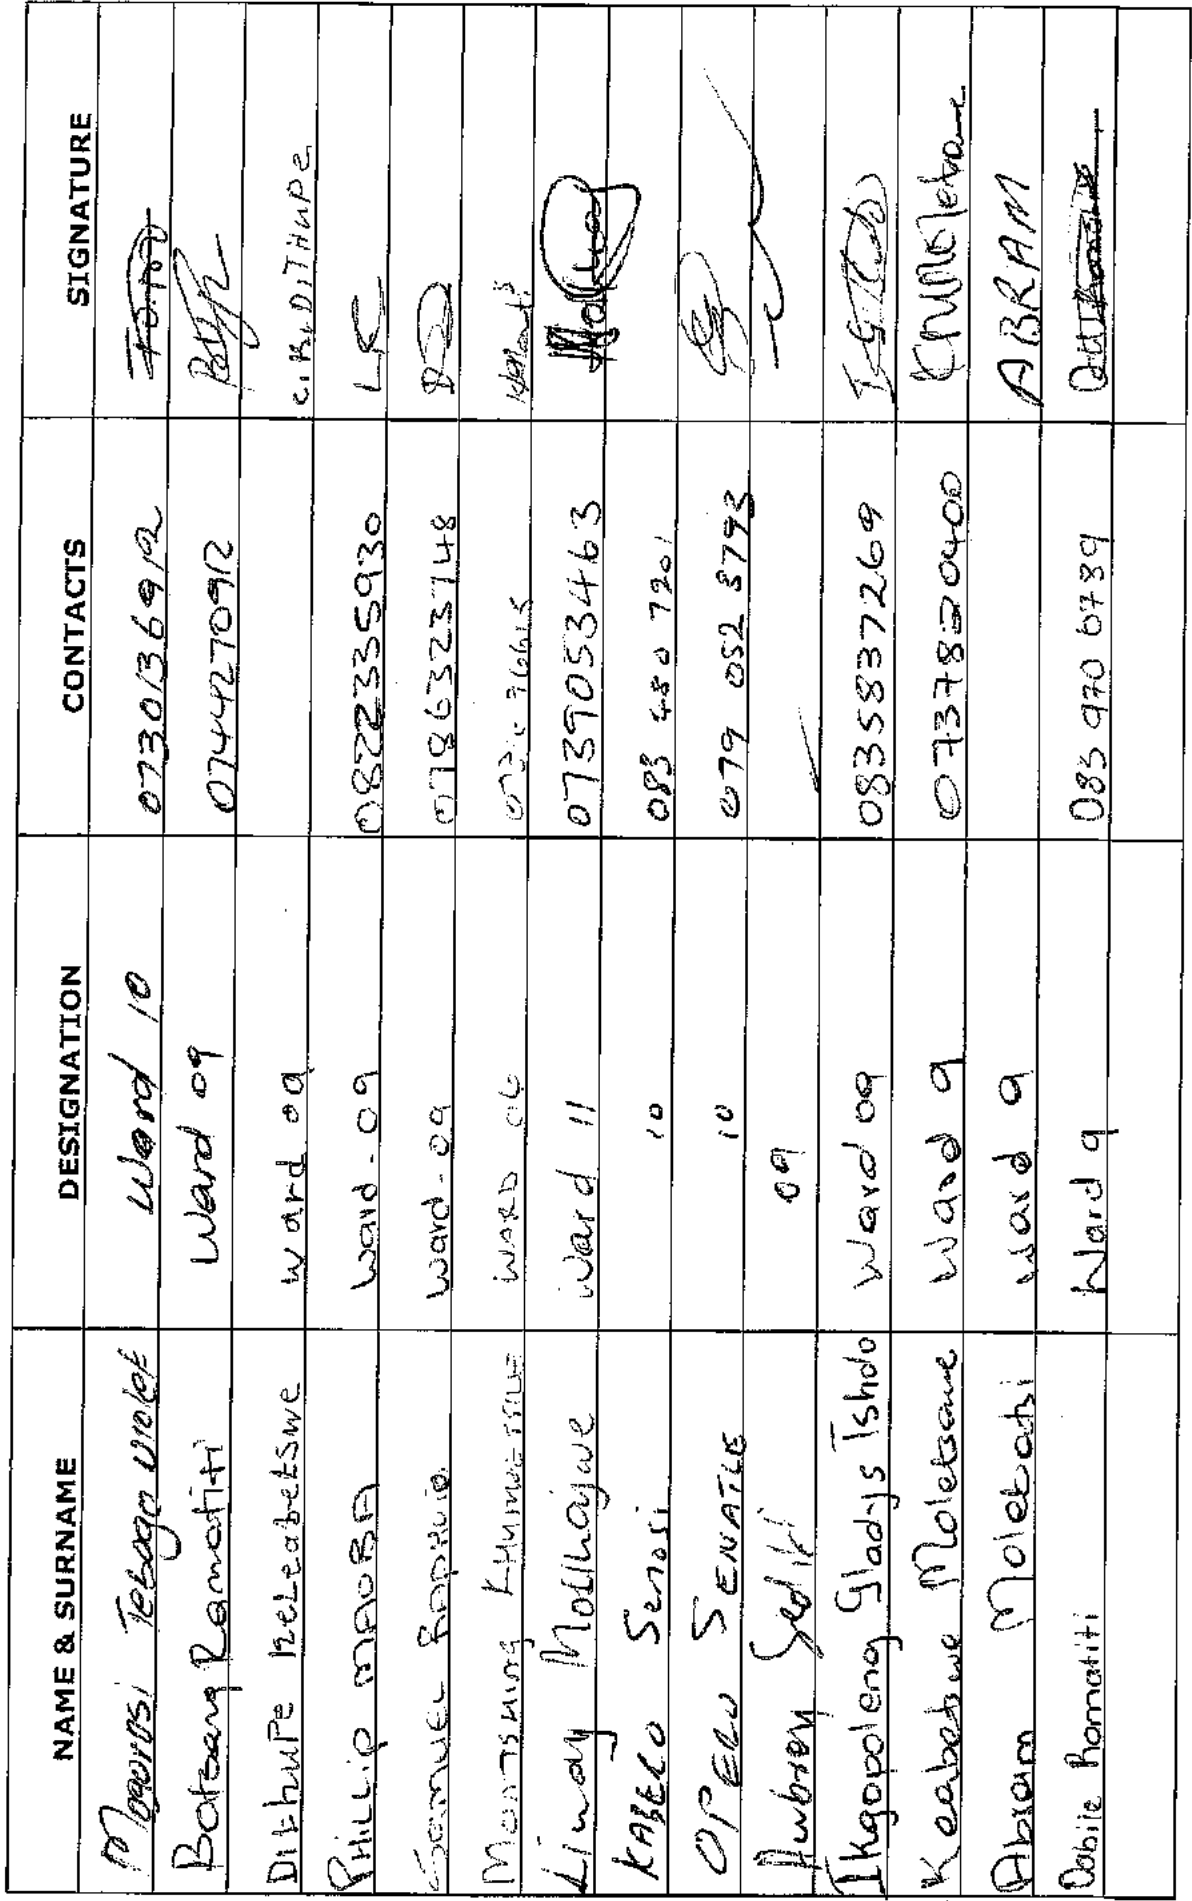 NAME & SURNAME DESIGNATION CONTACTS SIGNATURE
Mogorosi Tebogo Violet Ward 10 0730136912
Batsang Ramatiti Ward 09 0744270912
Dithupe Keleabetswe Ward 09 C.K.DiTHUPe
PHILLIP MAOBA Ward-09 0822335930 LS
SAMUEL Ward-09 0786323748
WARD 06
Motlhajwe Ward 11 0739053463
KABELO Senosi 10 083 480 7201
OPELO SENATLE 10 079 052 8793
Aubrey 09
Ikgopoleng Gladys Tsholo Ward 09 0835837269
Keabetswe Moletsane Ward 9 0737820400 KMMoletsane
Abram Molebatsi Ward 9 ABRAM
Dabile Ramatiti Ward 9 083 970 6739